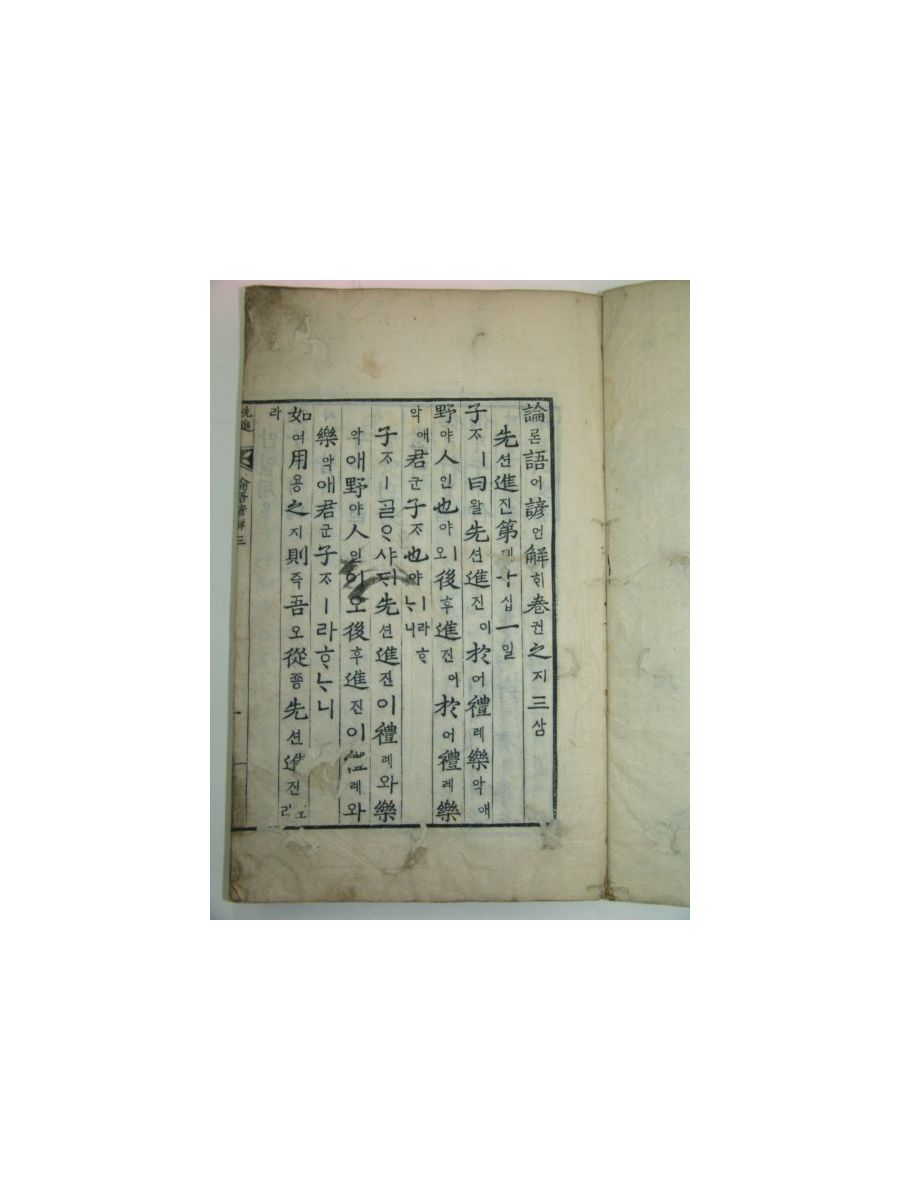 論론語어諺언解ᄒᆡ卷권之지三삼
先션進진第뎨十십一일
子ᄌᆞㅣ曰왈先션進진이於어禮례樂악애
野야人인也야ㅣ오後후進진이於어禮례樂
악애君군子ᄌᆞ也야ㅣ라ᄒᆞᄂᆞ니
子ᄌᆞㅣᄀᆞᆯᄋᆞ샤ᄃᆡ先션進진이禮례와樂
악애野야人인이오後후進진이禮례와
樂악애君군子ᄌᆞㅣ라ᄒᆞᄂᆞ니
如여用용之지則즉吾오從죵先션進진
라
先進
論語諺解三
一